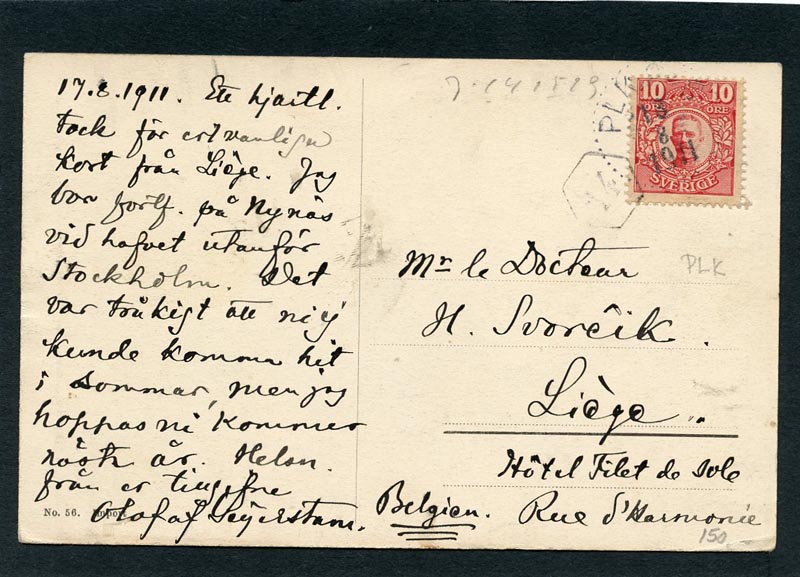 17.8.1911. Ett hjärtl.
tack för ert vänliga
kort från Liège. Jag
bor fortf. på Nynäs
vid hafvet utanför
Stockholm. Det
var tråkigt att ni ej
kunde komma hit
i sommar, men jag
hoppas ni kommer
nästa år. Helsn.
från er
Olof af Seyerstam.
No. 56.
PLK
1911
10 10
ÖRE ÖRE
SVERIGE
Mr le Docteur
PLK
H. Svorčik.
Liège.
Hôtel Filet de Sole
Belgien. Rue d'Harmonie
150,-